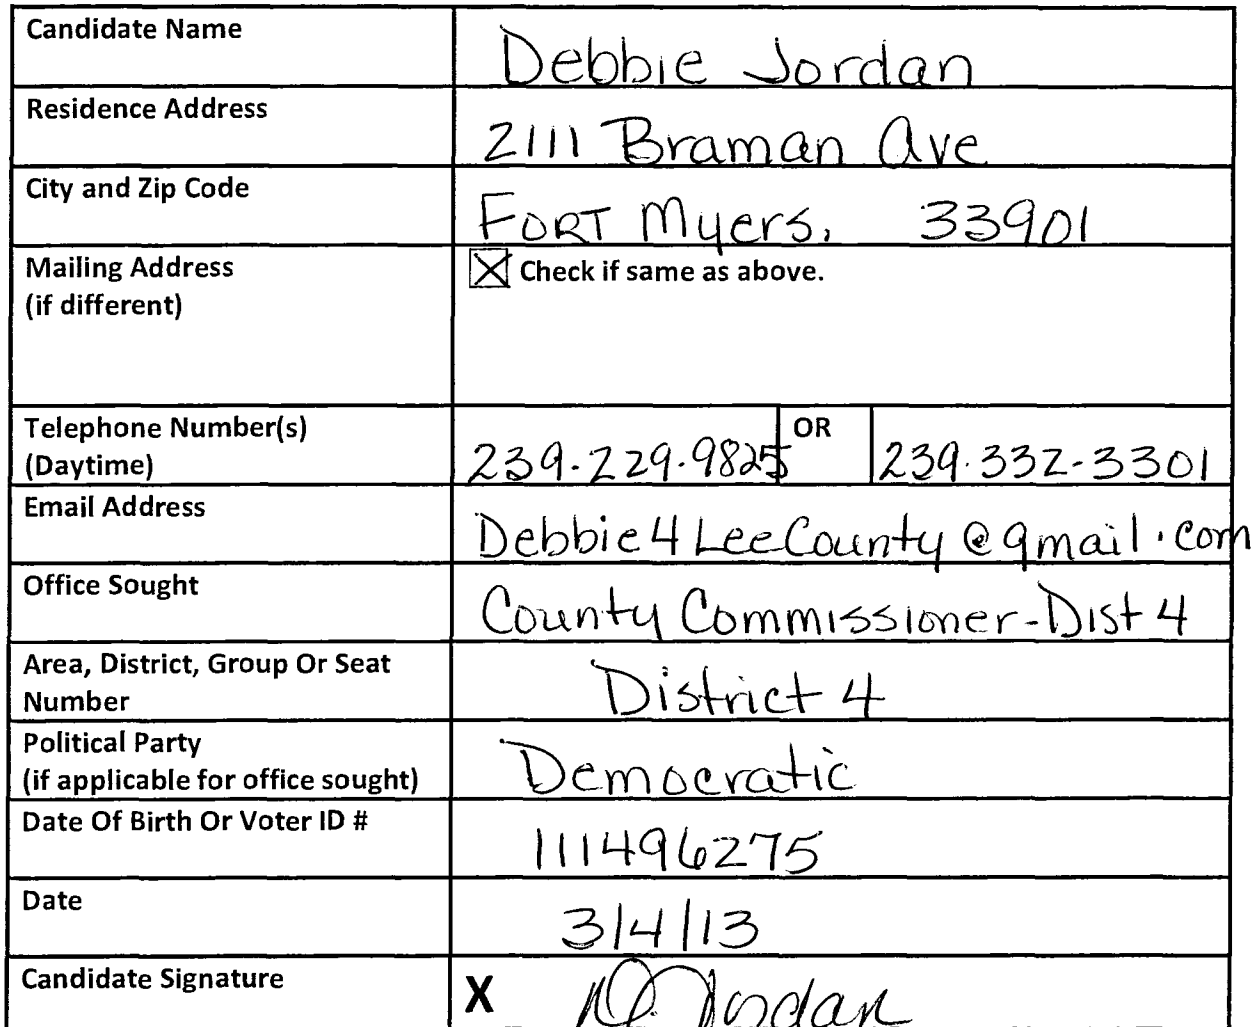 Candidate Name
Debbie Jordan
Residence Address
2111 Braman Ave
City and Zip Code
FORT Myers, 33901
Mailing Address
(if different)
☒ Check if same as above.
Telephone Number(s)
(Daytime)
239.229.9825 OR 239.332-3301
Email Address
Debbie4LeeCounty@gmail.com
Office Sought
County Commissioner-Dist 4
Area, District, Group Or Seat
Number
District 4
Political Party
(if applicable for office sought)
Democratic
Date Of Birth Or Voter ID #
111496275
Date
3/4/13
Candidate Signature
X D. Jordan